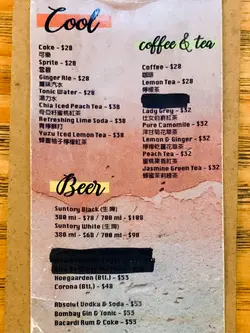 Cool
Coke - $28
可樂
Sprite - $28
雪碧
Ginger Ale - $28
薑味汽水
Tonic Water - $28
湯力水
Chia Iced Peach Tea - $38
奇亞籽蜜桃紅茶
Refreshing Lime Soda - $38
青檸梳打
Yuzu Iced Lemon Tea - $38
蜂蜜柚子檸檬紅茶
coffee & tea
Coffee - $28
咖啡
Lemon Tea - $28
檸檬茶
Lady Grey - $32
仕女伯爵紅茶
Pure Camomile - $32
洋甘菊花草茶
Lemon & Ginger - $32
檸檬乾薑花草茶
Peach Tea - $32
蜜桃果香紅茶
Jasmine Green Tea - $32
蜂蜜茉莉綠茶
Beer
Suntory Black (生啤)
380 ml - $78 / 700 ml - $108
Suntory White (生啤)
380 ml - $68 / 700 ml - $98
Hoegaarden (Btl.) - $53
Corona (Btl.) - $48
Absolut Vodka & Soda - $53
Bombay Gin & Tonic - $53
Bacardi Rum & Coke - $53